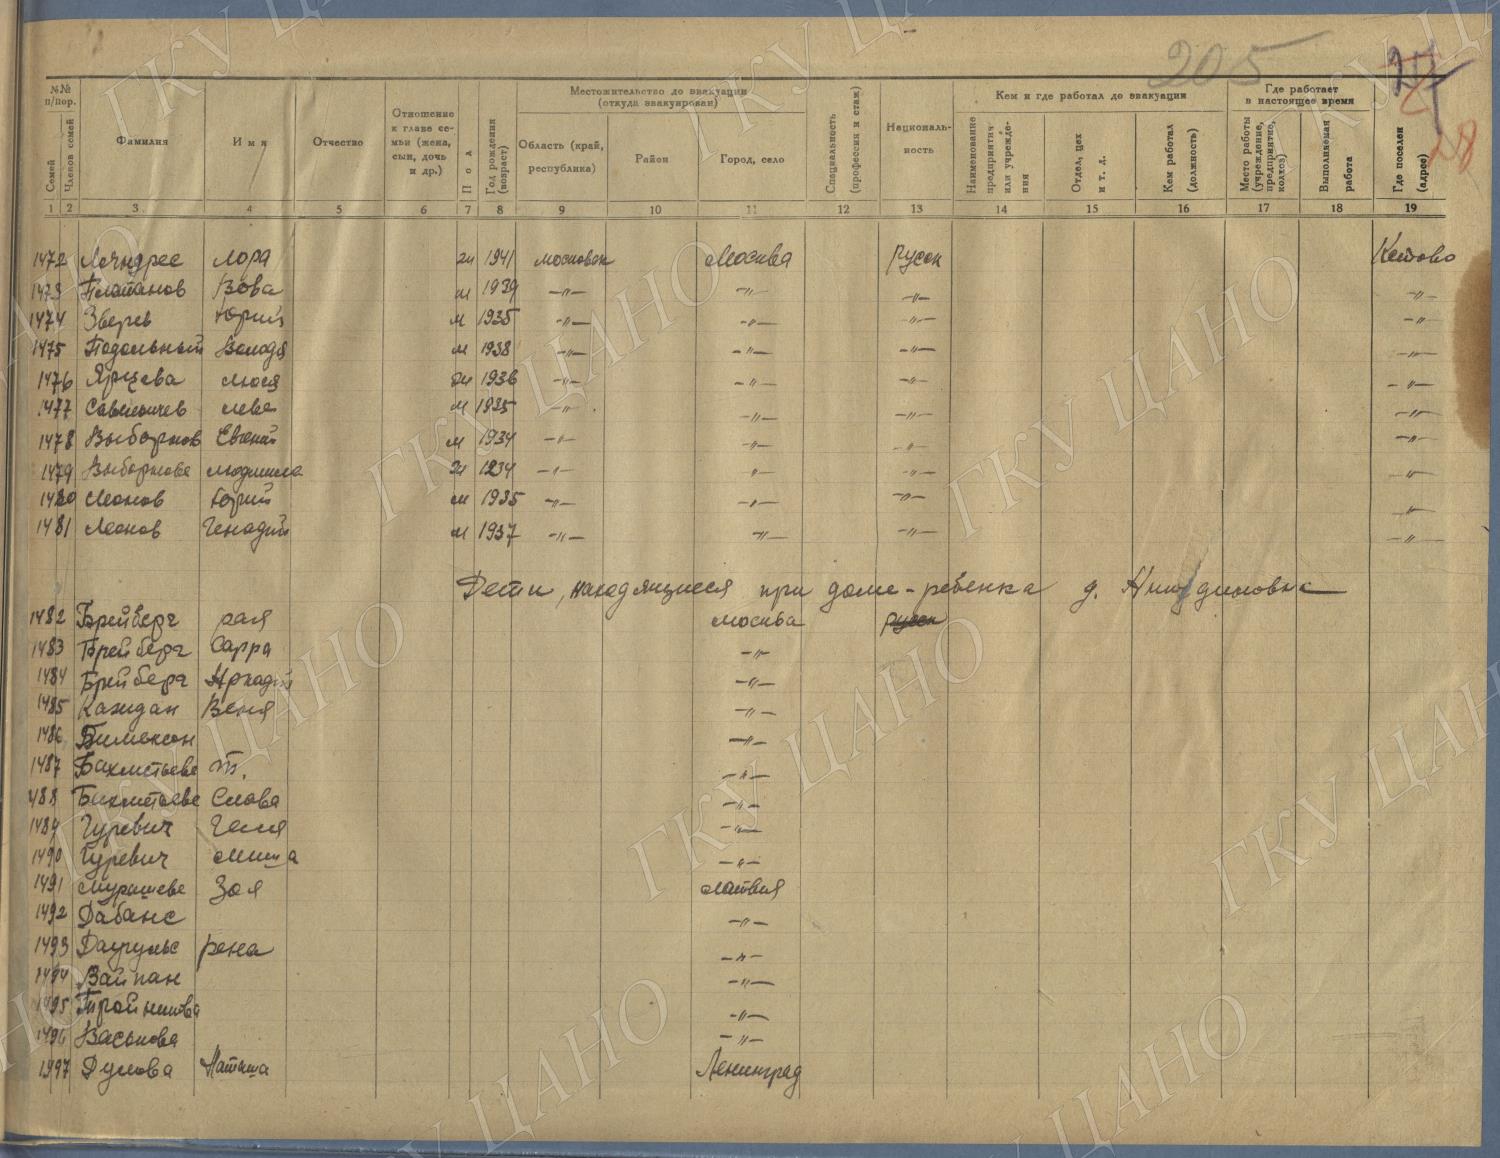 205
28
№№ п/пор.
Семей
Членов семей
Фамилия
Имя
Отчество
Отношение к главе семьи (жена, сын, дочь и др.)
Пол
Год рождения (возраст)
Местожительство до эвакуации (откуда эвакуирован)
Область (край, республика)
Район
Город, село
Специальность (профессия и стаж)
Национальность
Кем и где работал до эвакуации
Наименование предприятия или учреждения
Отдел, цех и т. д.
Кем работал (должность)
Где работает в настоящее время
Место работы (учреждение, предприятие, колхоз)
Выполняемая работа
Где поселен (адрес)
1 2 3 4 5 6 7 8 9 10 11 12 13 14 15 16 17 18 19
1472 Лора ж 1941 московск Москва Русск Кстово
1473 Платанов Вова м 1939 -"- -"- -"- -"-
1474 Зверев Юрий м 1935 -"- -"- -"- -"-
1475 Подольный Володя м 1938 -"- -"- -"- -"-
1476 Ярцева люся ж 1936 -"- -"- -"- -"-
1477 лева м 1935 -"- -"- -"- -"-
1478 Выборнов Евгений м 1934 -"- -"- -"- -"-
1479 Выборнова людмила ж 1934 -"- -"- -"- -"-
1480 Леонов Юрий м 1935 -"- -"- -"- -"-
1481 Леонов Генадий м 1937 -"- -"- -"- -"-
Дети, находящиеся при доме-ребенка д.
1482 Брейберг рая москва русск
1483 Брейберг Сарра -"-
1484 Брейберг Аркадий -"-
1485 Кажидан Веня -"-
1486 -"-
1487 Бахметьева т. -"-
1488 Бахметьева Слава -"-
1489 Гуревич Геня -"-
1490 Гуревич миша -"-
1491 мурашева Зоя латвия
1492 Дабанс -"-
1493 рена -"-
1494 Вайпан -"-
1495 Тройникова -"-
1496 Васькова -"-
1997 Наташа Ленинград
ГКУ ЦАНО